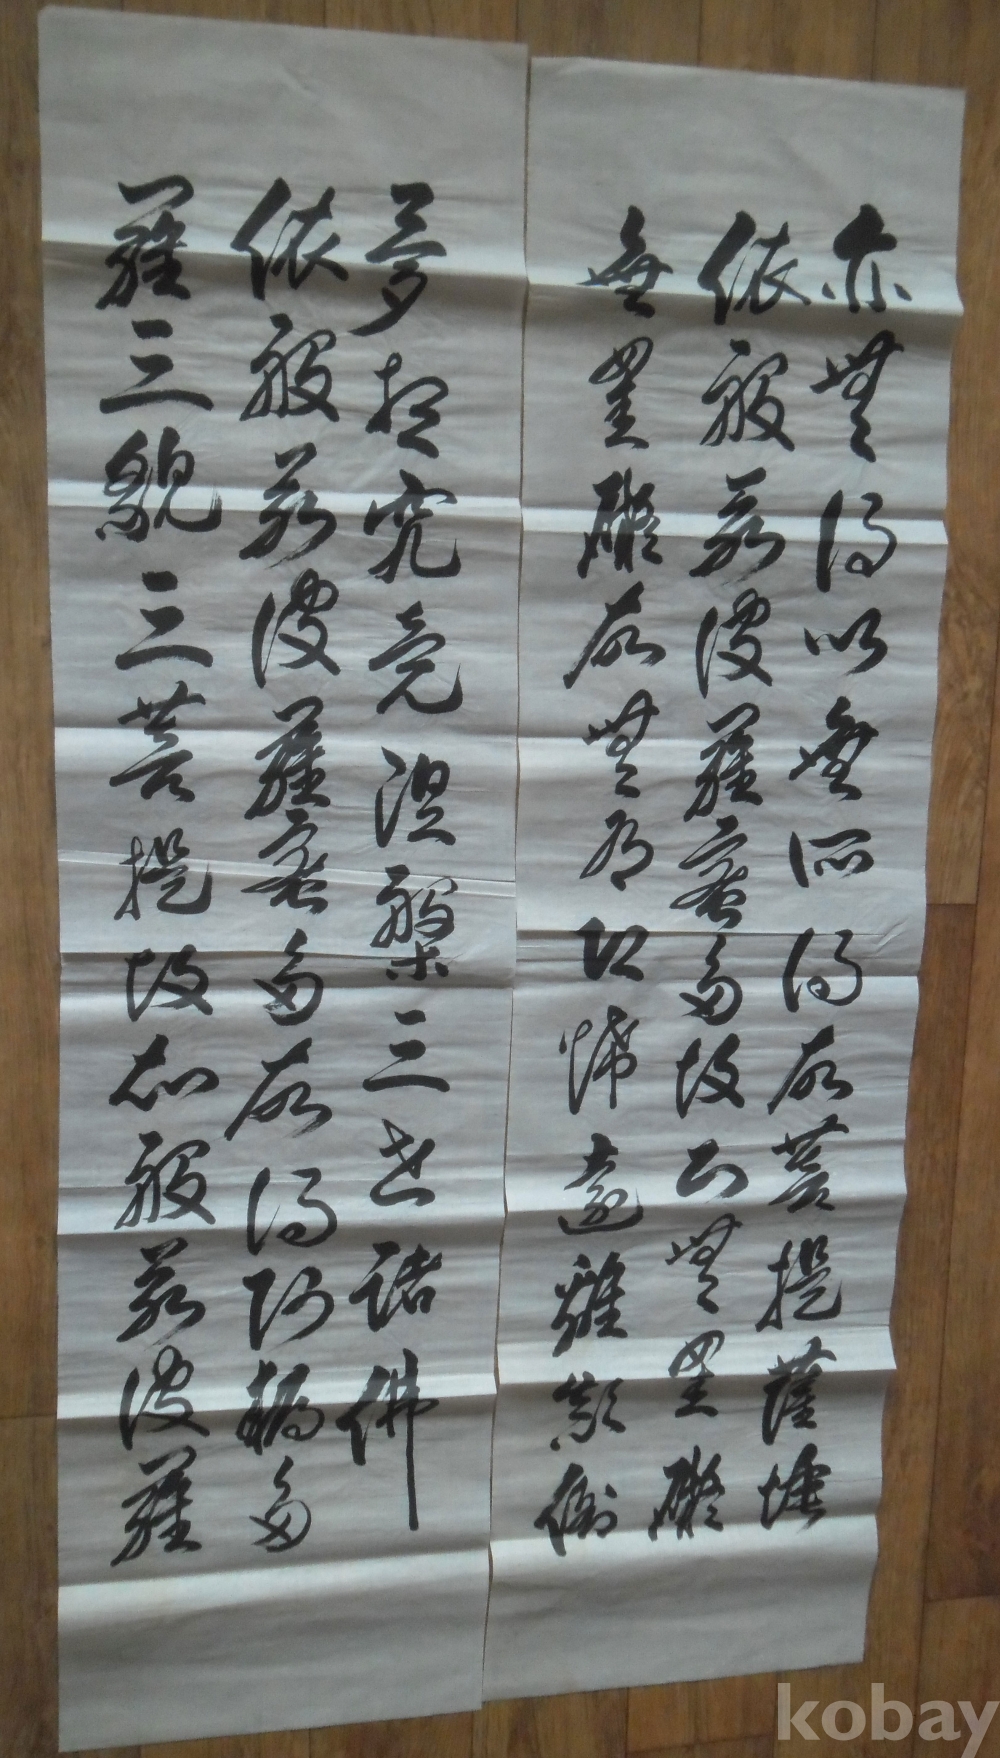 亦無得以無所得故菩提薩埵
依般若波羅蜜多故心無罣礙
無罣礙故無有恐怖遠離顛倒
夢想究竟涅槃三世諸佛
依般若波羅蜜多故得阿耨多
羅三藐三菩提故知般若波羅
kobay